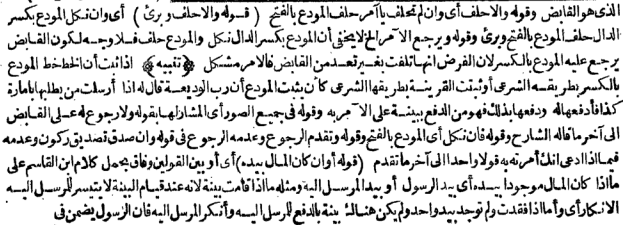 الذى هو القابض وقوله والاحلف أى وان لم تحلف يا آمر حلف المودع بالفتح ( قوله والاحلف وبرئ ) أى وان نكل المودع بكسر
الدال حلف المودع بالفتح وبرئ وقوله ويرجع الآمر الخ لا يخفى أن المودع بكسر الدال نكل والمودع حلف فلا وجه لكون القابض
يرجع عليه المودع بالكسر لان الفرض انها تلفت بغير تعد من القابض فالامر مشكل ﴿ تنبيه ﴾ اذا ثبت أن الخط خط المودع
بالكسر بطريقه الشرعى أو ثبتت القرينة بطريقها الشرعى كان يثبت المودع أن رب الوديعة قال له اذا أرسلت من يطلبها بامارة
كذا فادفعها له ودفعها بذلك فهو من الدفع ببينة على الآمر به وقوله فى جميع الصور أى المشار لها بقوله ولا رجوع له على القابض
الى آخر ما قاله الشارح وقوله فان نكل أى المودع بالفتح وقوله وتقدم الرجوع وعدمه الرجوع فى قوله وان صدق تصديق ركون وعدمه
فيما اذا ادعى انك أمرته به قولا واحدا الى آخر ما تقدم ( قوله أو ان كان المال بيده ) أى أو بين القولين وفاق بحمل كلام ابن القاسم على
ما اذا كان المال موجودا بيده أى بيد الرسول أو بيد المرسل اليه ومثله ما اذا قامت بينة لانه عند قيام البينة لا يتيسر للمرسل اليه
الانكار أى وأما اذا فقدت ولم توجد بيد واحد ولم يكن هناك بينة بالدفع للمرسل اليه وأنكر المرسل اليه فان الرسول يضمن فى